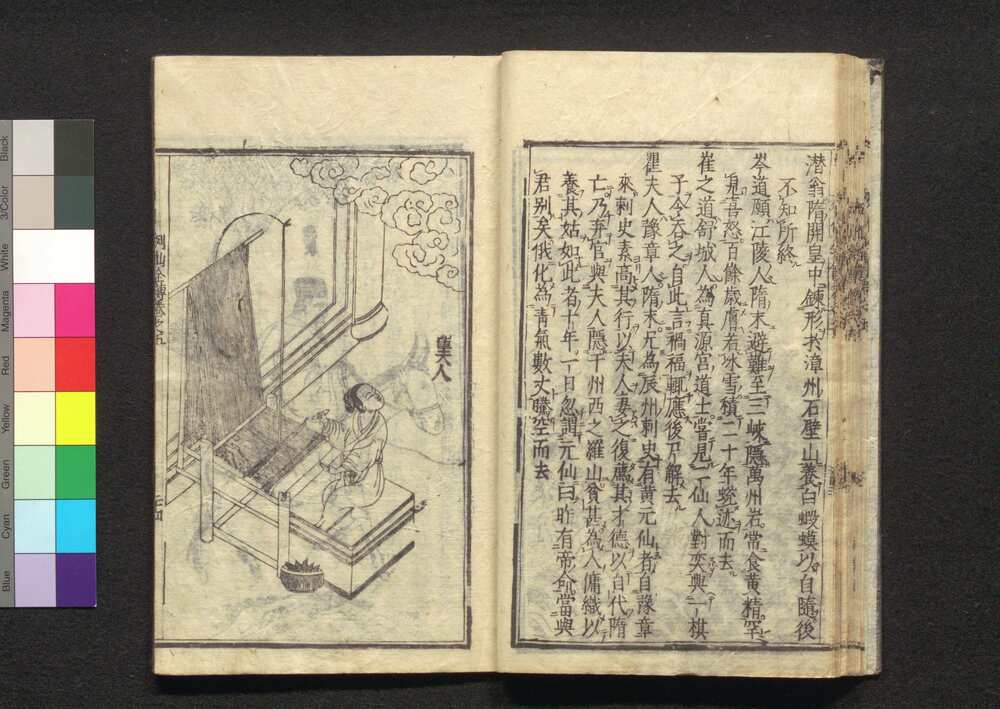 潜翁隋開皇中錬形於漳州石壁山養白蝦蟆以自隨後
不知所終
岑道願江陵人隋末避難至三峽隱萬州岩常食黄精罕
見喜怒百餘歳膚若氷雪積二十年蛻迹而去
崔之道舒城人為真源宮道士嘗見一仙人對奕與一棋
子令吞之自此言禍福輒應後尸解去
瞿夫人豫章人隋末尤為辰州刺史有黄元仙者自豫章
來刺史素高其行以夫人妻之復薦其才德以自代隋
亡乃弃官與夫人隱于州西之羅山貧甚為人傭織以
養其姑如此者十年一日忽謂元仙曰昨有帝命當與
君別矣俄化為青氣數丈騰空而去
瞿夫人
列仙全傳卷之五
二十四
Black
3/Color
White
Magenta
Red
Yellow
Green
Cyan
Blue